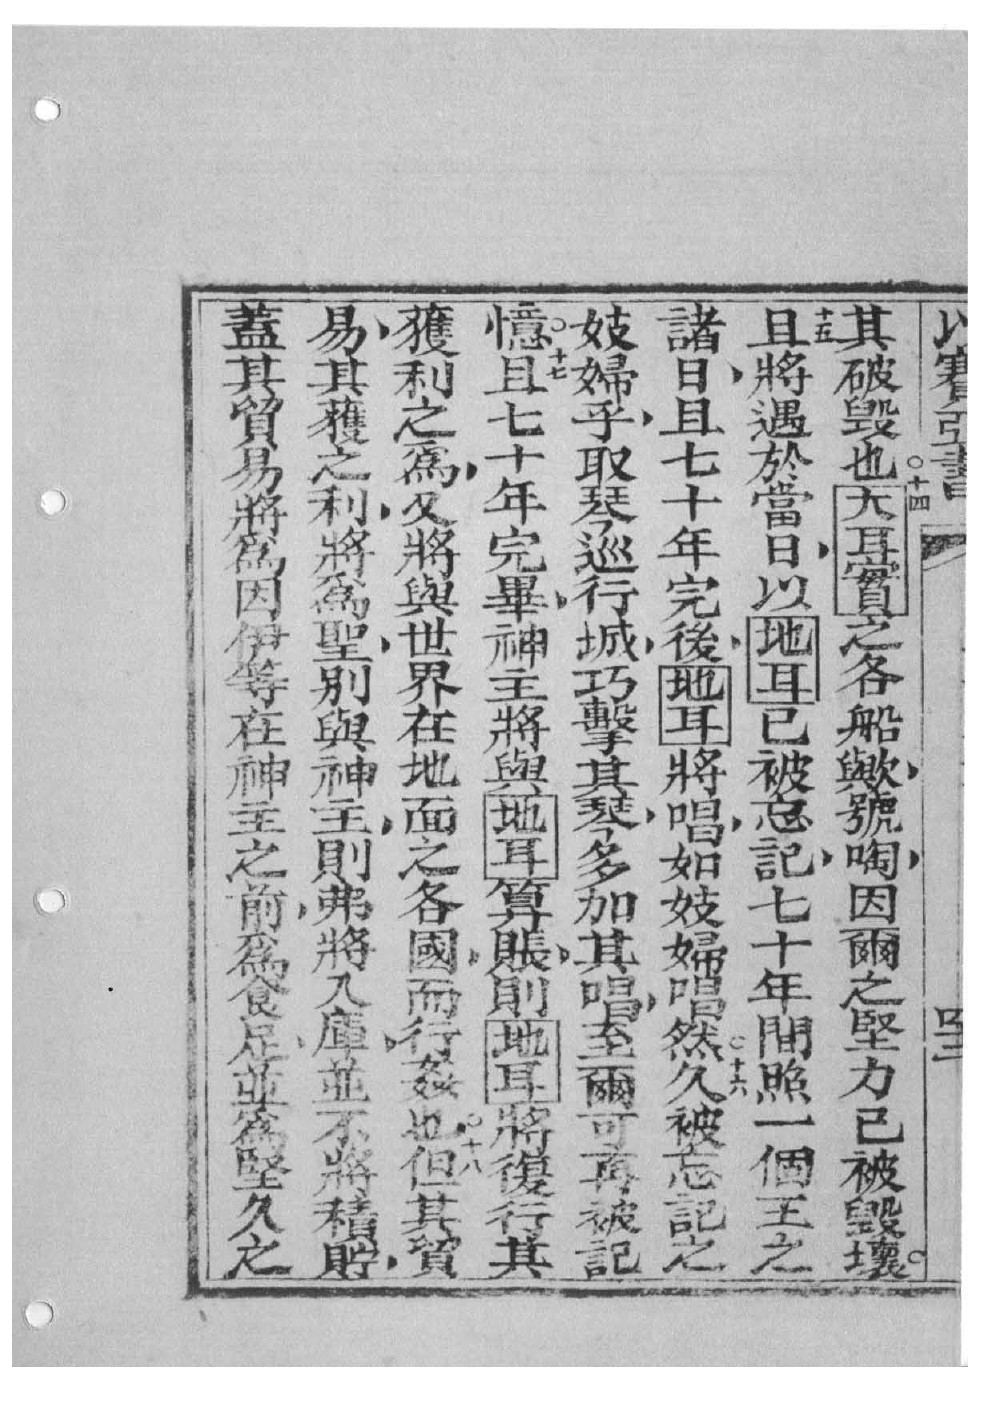 以賽亞書
其破毀也○十四大耳實之各船歟、號啕、因爾之堅力已被毀壞。
十五且將遇於當日、以地耳已被忘記、七十年間照一個王之
諸日、且七十年完後、地耳將唱、如妓婦唱然○十六久被忘記之
妓婦乎、取琴巡行城、巧擊其琴、多加其唱、至爾可再被記
憶○十七且七十年完畢、神主將與地耳算賬、則地耳將復行其
獲利之爲、又將與世界在地面之各國、而行姦也○十八但其貿
易、其獲之利、將爲聖、別與神主、則弗將入庫、並不將積貯、
蓋其貿易將爲因伊等在神主之前、爲食足、並爲堅久之